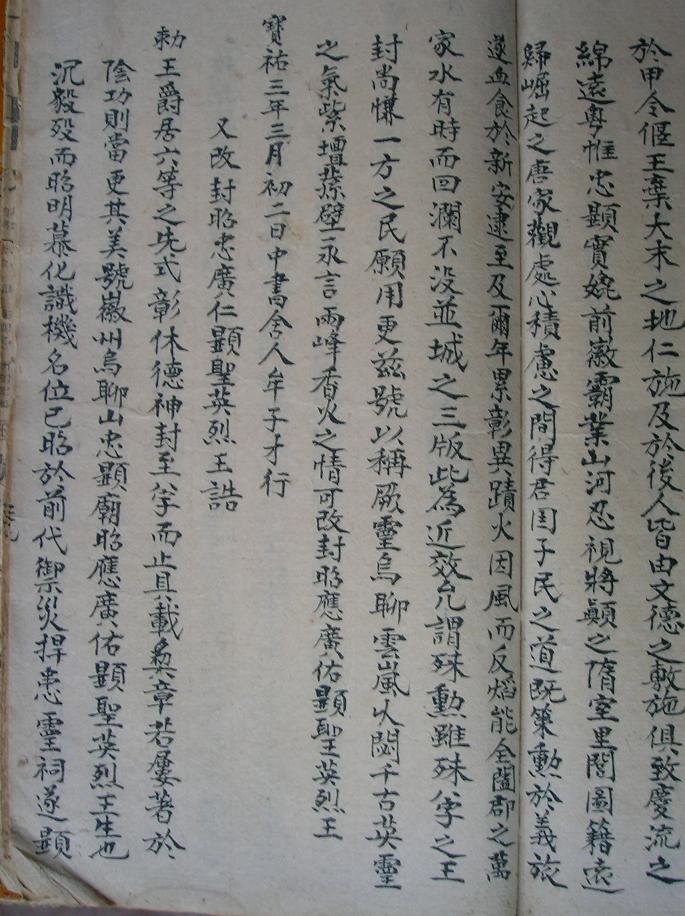 於甲令偃王棄大末之地仁施及於後人皆由文德之敷施俱致慶流之
綿遠粵惟忠顯實嬈前徽霸業山河忍視將顛之隋室里閭圖籍遠
歸崛起之唐家觀處心積慮之間得君国子民之道既策勲於義旅
遂血食於新安逮至及爾年累彰異蹟火因風而反熖能全闔郡之萬
家水有時而回瀾不没並城之三版此為近效允謂殊勲雖殊字之王
封尚慊一方之民願用更兹號以稱厥靈烏聊雲嵐久閟千古英靈
之氣紫壇藻壁永言兩峰香火之情可改封昭應廣佑顯聖英烈王
寶祐三年三月初二日中書舍人牟子才行
又改封昭忠廣仁顯聖英烈王誥
勅王爵居六等之先式彰休德神封至八字而止具載彝章若屢著於
陰功則當更其美號徽州烏聊山忠顯廟昭應廣佑顯聖英烈王生也
沉毅殁而昭明慕化識機名位已昭於前代禦災捍患靈祠遂顯